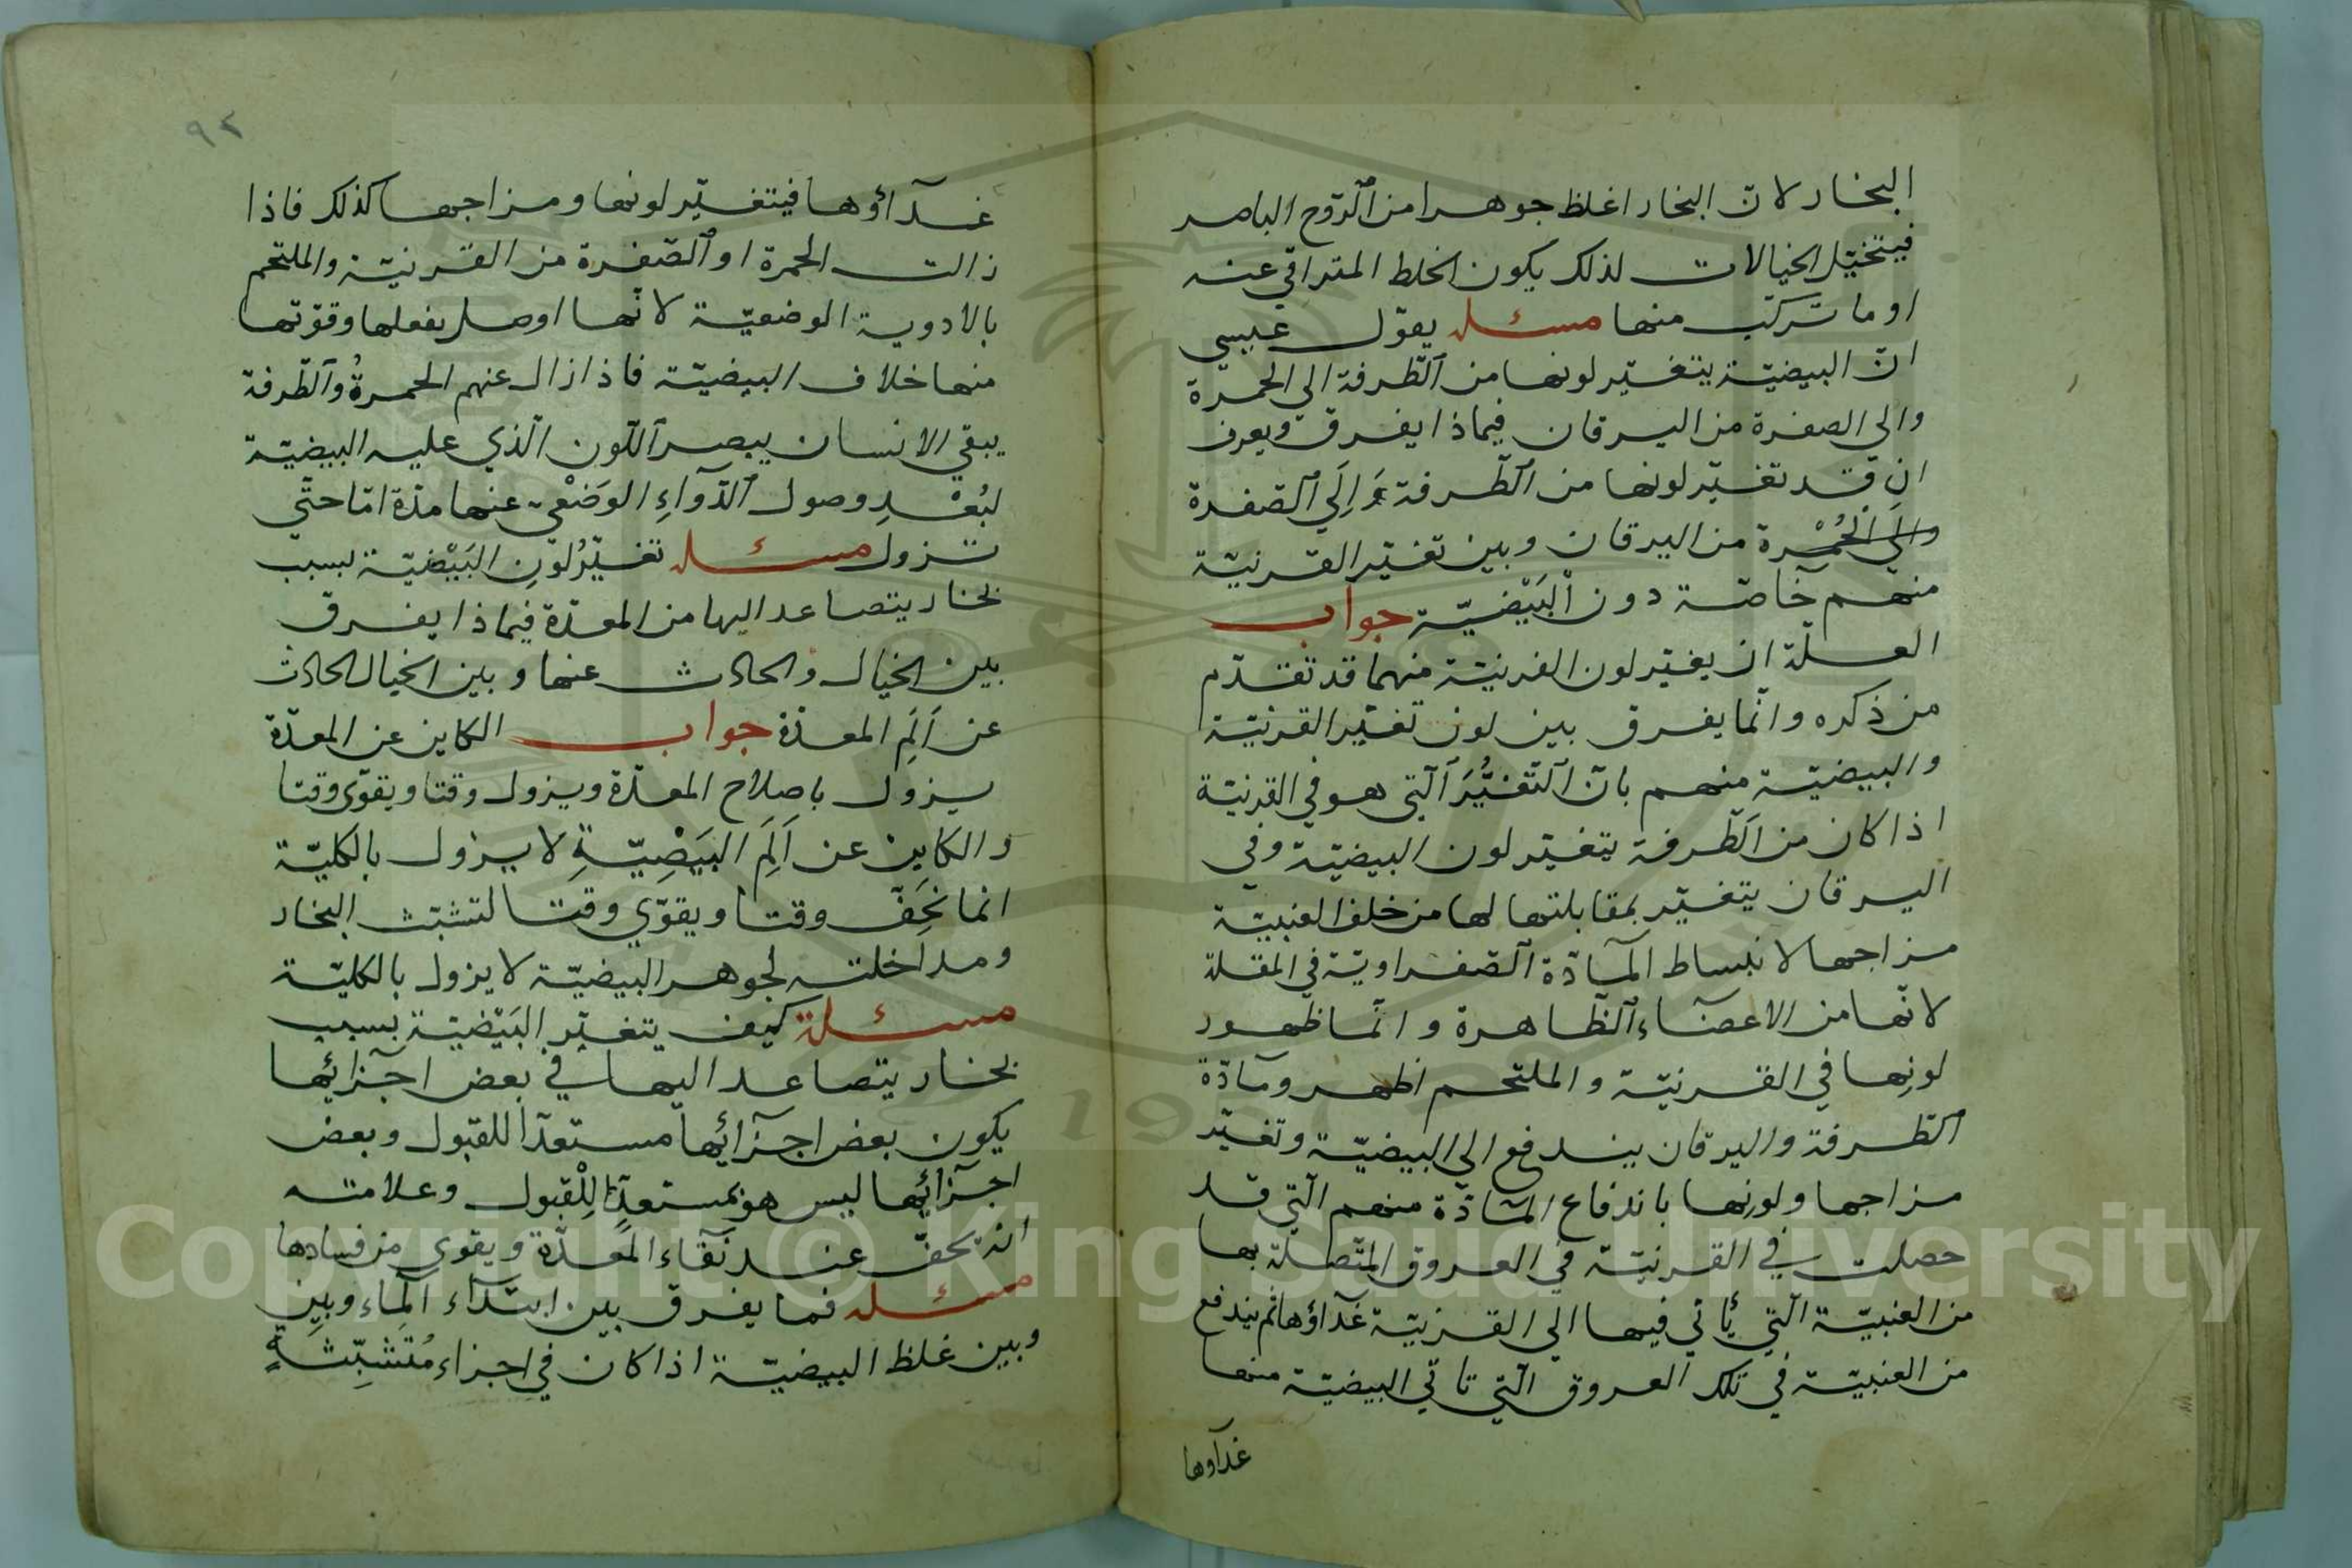 البخار لانّ البخار اغلظ جوهرا من الرّوح الباصر
فيتخيّل الخيالات لذلك يكون الخلط المتراقي عنه
او ما تركّب منها مسئله يقول عيسي
انّ البيضيّة يتغيّر لونها من الطّرفة الى الحمرة
والى الصفرة من اليرقان فبماذا يفرق ويعرف
ان قد تغيّر لونها من الطّرفة اِلَي الصّفرة
والَي الحُمْرة من اليرقان وبين تغيّر القرنيّة
منهم خآصّة دون البَيْضيّة جواب
العلّة ان يغيّر لون القرنيّة منهما قد تقدّم
من ذكره وانّما يفرق بين لون تغيّر القرنيّة
والبيضيّة منهم بانّ التّغيُّرَ الّتي هو في القرنيّة
اذا كان من الطّرفة يتغيّر لون البيضيّة وفي
اليرقان يتغيّر بمقابلتها لها من خلف العنبيّة
مزاجها لانبساط المآدّة الصّفراويّة في المقلة
لانّها من الاعضآء الظّاهرة وانّما ظهور
لونِها في القرنيّة والملتحم اظهر ومآدّة
الطّرفة واليرقان يندفع الي البيضيّة وتغيّر
مزاجها ولونِها باندفاع المآدّة منهم الّتي قد
حصلت في القرنيّة في العروق المتّصلة بها
من العنبيّة الّتي يأتي فيها الي القرنيّة غدآؤها ثم يندفع
من العنبيّة في تلك العروق الّتي تاتي البيضيّة منها
غدآوها
٩٢
غدآؤها فيتغيّر لونها ومزاجها كذلك فاذا
زالت الحمرة او الصّفرة من القرنيّة والملتحم
بالادوية الوضعيّة لانّها اوصل بفعلها وقوّتها
منها خلاف البيضيّة فاذا زال عنهم الحمرةُ والطّرفة
يبقي الانسان يبصر اللّون الّذي عليه البيضيّة
لبُعْدِ وصول الدّوآءِ الوَضْعيّ عنها مدّة امّا حتّي
تزول مسئله تغيّرُ لونِ البَيْضيّة بسبب
بخار يتصاعد اليها من المعدّة فبماذا يفرق
بين الخيال والحادث عنها وبين الخيال الحادث
عن اَلَمِ المعدّة جواب الكاين عن المعدّة
يزول باصلاح المعدّة ويزول وقتا ويقوّى وقتا
والكاين عن اَلَمِ البَيَضِيّةِ لا يزول بالكليّة
انما نَخِفّ وقتا ويقوّي وقتا لتشبّث البخار
ومداخلته لجوهر البيضيّة لا يزول بالكليّة
مسئلة كيف يتغيّر البَيْضيّة بسبب
بخار يتصاعد اليها في بعض اجزائها
يكون بعض اجزآئها مستعدّا للقبول وبعض
اجزآئِها ليس هو بمستعدٍّ لِلْقبول وعلامته
انّه يخفّ عند نقآء المعدّة ويقوى من فسادها
مسئله فما يفرق بين ابتدآء المآء وبين
وبين غلظ البيضيّة اذا كان في اجزاء مُتَشبِّثةٍ
Copyright © King Saud University